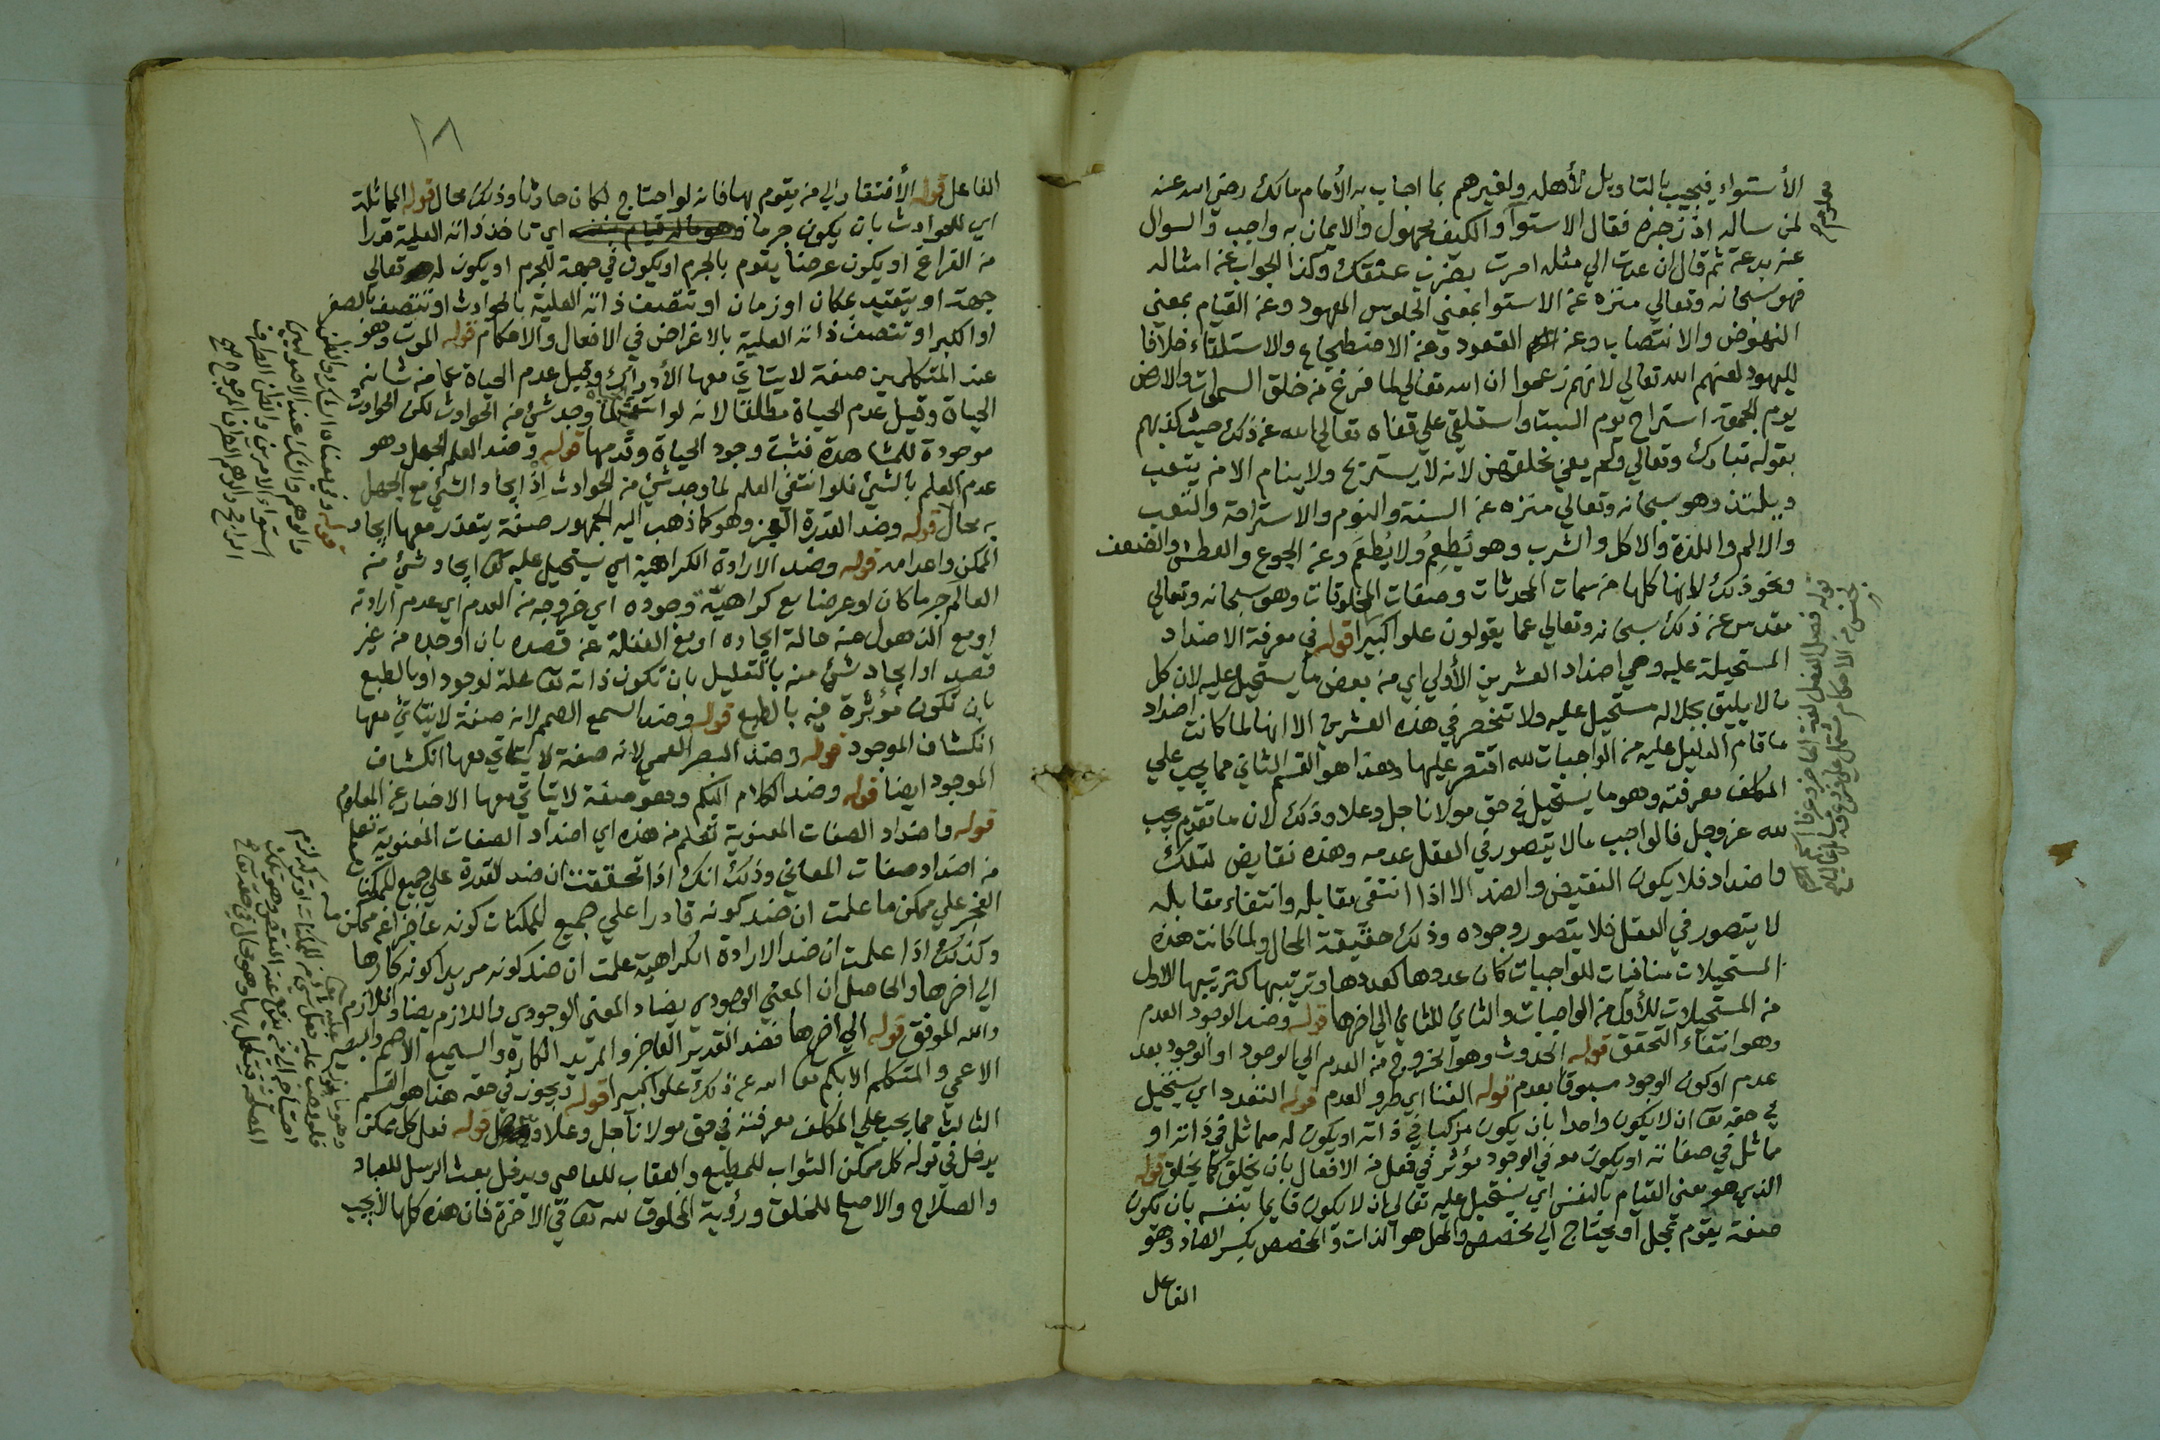 الأستواء فيجيب بالتاويل لأهله ولغيرهم بما اجاب به الأمام مالك رضي الله عنه
لمن ساله اذ زجره فقال الاستوآ والكيف مجهول والايمان به واجب والسوال
عنه بدعة ثم قال ان عدت الي مثله امرت بضرب عنقك وكذا الجواب عن امثاله
فهو سبحانه وتعالي منزه عن الاستوا بمعني الجلوس المعهود وعن القيام بمعني
النهوض والانتصاب وعن القعود وعن الاضطجاع والاستلقاء خلافا
لليهود لعنهم الله تعالي لانهم زعموا ان الله تعالي لما فرغ من خلق السموات والارض
يوم الجمعة استراح يوم السبت واستلقي علي قفاه تعالي الله عن ذلك حيث كذبهم
بقوله تبارك وتعالي ولم يعي بخلقهن لانه لا يستريح ولا ينام الا من يتعب
ويلتذ وهو سبحانه وتعالي منزه عن السنة والنوم والاستراحة والتعب
والالم واللذة والاكل والشرب وهو يُطعِمُ ولا يُطعَم وعن الجوع والعطش والضعف
ونحو ذلك لانها كلها من سمات المحدثات وصفات المخلوقات وهو سبحانه وتعالي
مقدس عن ذلك سبحانه وتعالي عما يقولون علوا كبيرا قوله في معرفة الاضداد
المستحيلة عليه وهي اضداد العشرين الأولي اي من بعض ما يستحيل عليه لان كل
ما لا يليق بجلاله مستحيل عليه ولا تنحصر في هذه العشرين الا انها لما كانت اضداد
ما قام الدليل عليه من الواجبات لله اقتصر عليها وهذا هو القسم الثاني مما يجب علي
المكلف معرفته وهو ما يستحيل في حق مولانا جل وعلا وذلك لان ما تقدم يجب
لله عز وجل فالواجب ما لا يتصور في العقل عدمه وهذه نقايض لتلك
واضداد فلا يكون النقيض والضد الا اذا انتفي مقابله وانتفاء مقابله
لا يتصور في العقل فلا يتصور وجوده وذلك حقيقة المحال ولما كانت هذه
المستحيلات منافيات للواجبات كان عددها كعددها وترتيبها كترتيبها الاول
من المستحيلات للأول من الواجبات والثاني للثاني الي اخرها قوله وضد الوجود العدم
وهو انتفاء التحقق قوله الحدوث وهو الخروج من العدم الي الوجود او الوجود بعد
عدم او كون الوجود مسبوقا بعدم قوله الفنا اي طرو العدم قوله التعدد اي يستحيل
في حقه تعا ان لا يكون واحدا بان يكون مركبا في ذاته او يكون له مماثل في ذاته او
مماثل في صفاته او يكون معه في الوجود مؤثر في فعل من الافعال بان يخلق كما يخلق قوله
الذي هو معني القيام بالنفس اي يستحيل عليه تعالي ان لا يكون قايما بنفسه بان يكون
صفة يقوم بمحل او يحتاج الي مخصص والمحل هو الذات والمخصص بكسر الصاد وهو
الفاعل
١٨
الفاعل قوله الأفتقار الي من يقوم بها فانه لو احتاج لكان حادثا وذلك محال قوله المماثلة
اي للحوادث بان يكون جرما اي تاخذ ذاته العلية قدرا
من الفراغ او يكون عرضا يقوم بالجرم او يكون في جهة للجرم او يكون له تعالي
جهة او يتقيد بمكان او زمان او تتصف ذاته العلية بالحوادث او تتصف بالصغر
او الكبر او تتصف ذاته العلية بالاغراض في الافعال والاحكام قوله الموت وهو
عند المتكلمين صفة لا يتاتي معها الأدراك وقيل عدم الحياة عما من شانه
الحياة وقيل عدم الحياة مطلقا لانه لو انتفت لما وجد شئ من الحوادث لكن الحوادث
موجودة للمشاهدة فثبت وجود الحياة وقدمها قوله وضد العلم الجهل وهو
عدم العلم بالشئ فلو انتفي العلم لما وجد شئ من الحوادث اذ ايجاد الشئ مع الجهل
به محال قوله وضد القدرة العجز وهو كما ذهب اليه الجمهور صفة يتعذر معها ايجاد
الممكن واعدامه قوله وضد الارادة الكراهية اي يستحيل عليه تعا ايجاد شئ من
العالم جرما كان او عرضا مع كراهيّة وجوده اي خروجه من العدم اي عدم ارادته
او مع الذهول عنه حالة ايجاده او مع الغفلة عن قصده بان اوجده من غير
قصد او ايجاد شئ منه بالتعليل بان تكون ذاته تعا علة لوجود او بالطبع
بان تكون مؤثرة فيه بالطبع قوله وضد السمع الصمم لانه صفة لا يتاتي معها
انكشاف الموجود قوله وضد البصر العمي لانه صفة لا يتاتي معها انكشاف
الموجود ايضا قوله وضد الكلام البكم وهو صفة لا يتاتي معها الاخبار عن المعلوم
قوله واضداد الصفات المعنوية تعلم من هذه اي اضداد الصفات المعنوية تعلم
من اضداد صفات المعاني وذلك انك اذا تحققت ان ضد القدرة علي جميع الممكنات
العجز علي ممكن ما علمت ان ضد كونه قادرا علي جميع الممكنات كونه عاجزا عن ممكن ما
وكذلك اذا علمت ان ضد الارادة الكراهية علمت ان ضد كونه مريدا كونه كارها
الي اخرها والحاصل ان المعني الوجودي يضاد المعني الوجودي واللازم يضاد اللازم
والله الموفق قوله الي اخرها فضد القدير العاجز والمريد الكاره والسميع الاصم والبصير
الاعمي والمتكلم الابكم تعا الله عن ذلك علوا كبيرا قوله ويجوز في حقه هذا هو القسم
الثالث مما يجب علي المكلف معرفته في حق مولانا جل وعلا قوله فعل كل ممكن
يدخل في قوله كل ممكن الثواب للمطيع والعقاب للعاصي ويدخل بعث الرسل للعباد
والصلاح والاصلح للخلق ورؤية المخلوق لله تعا في الاخرة فان هذه كلها لا يجب